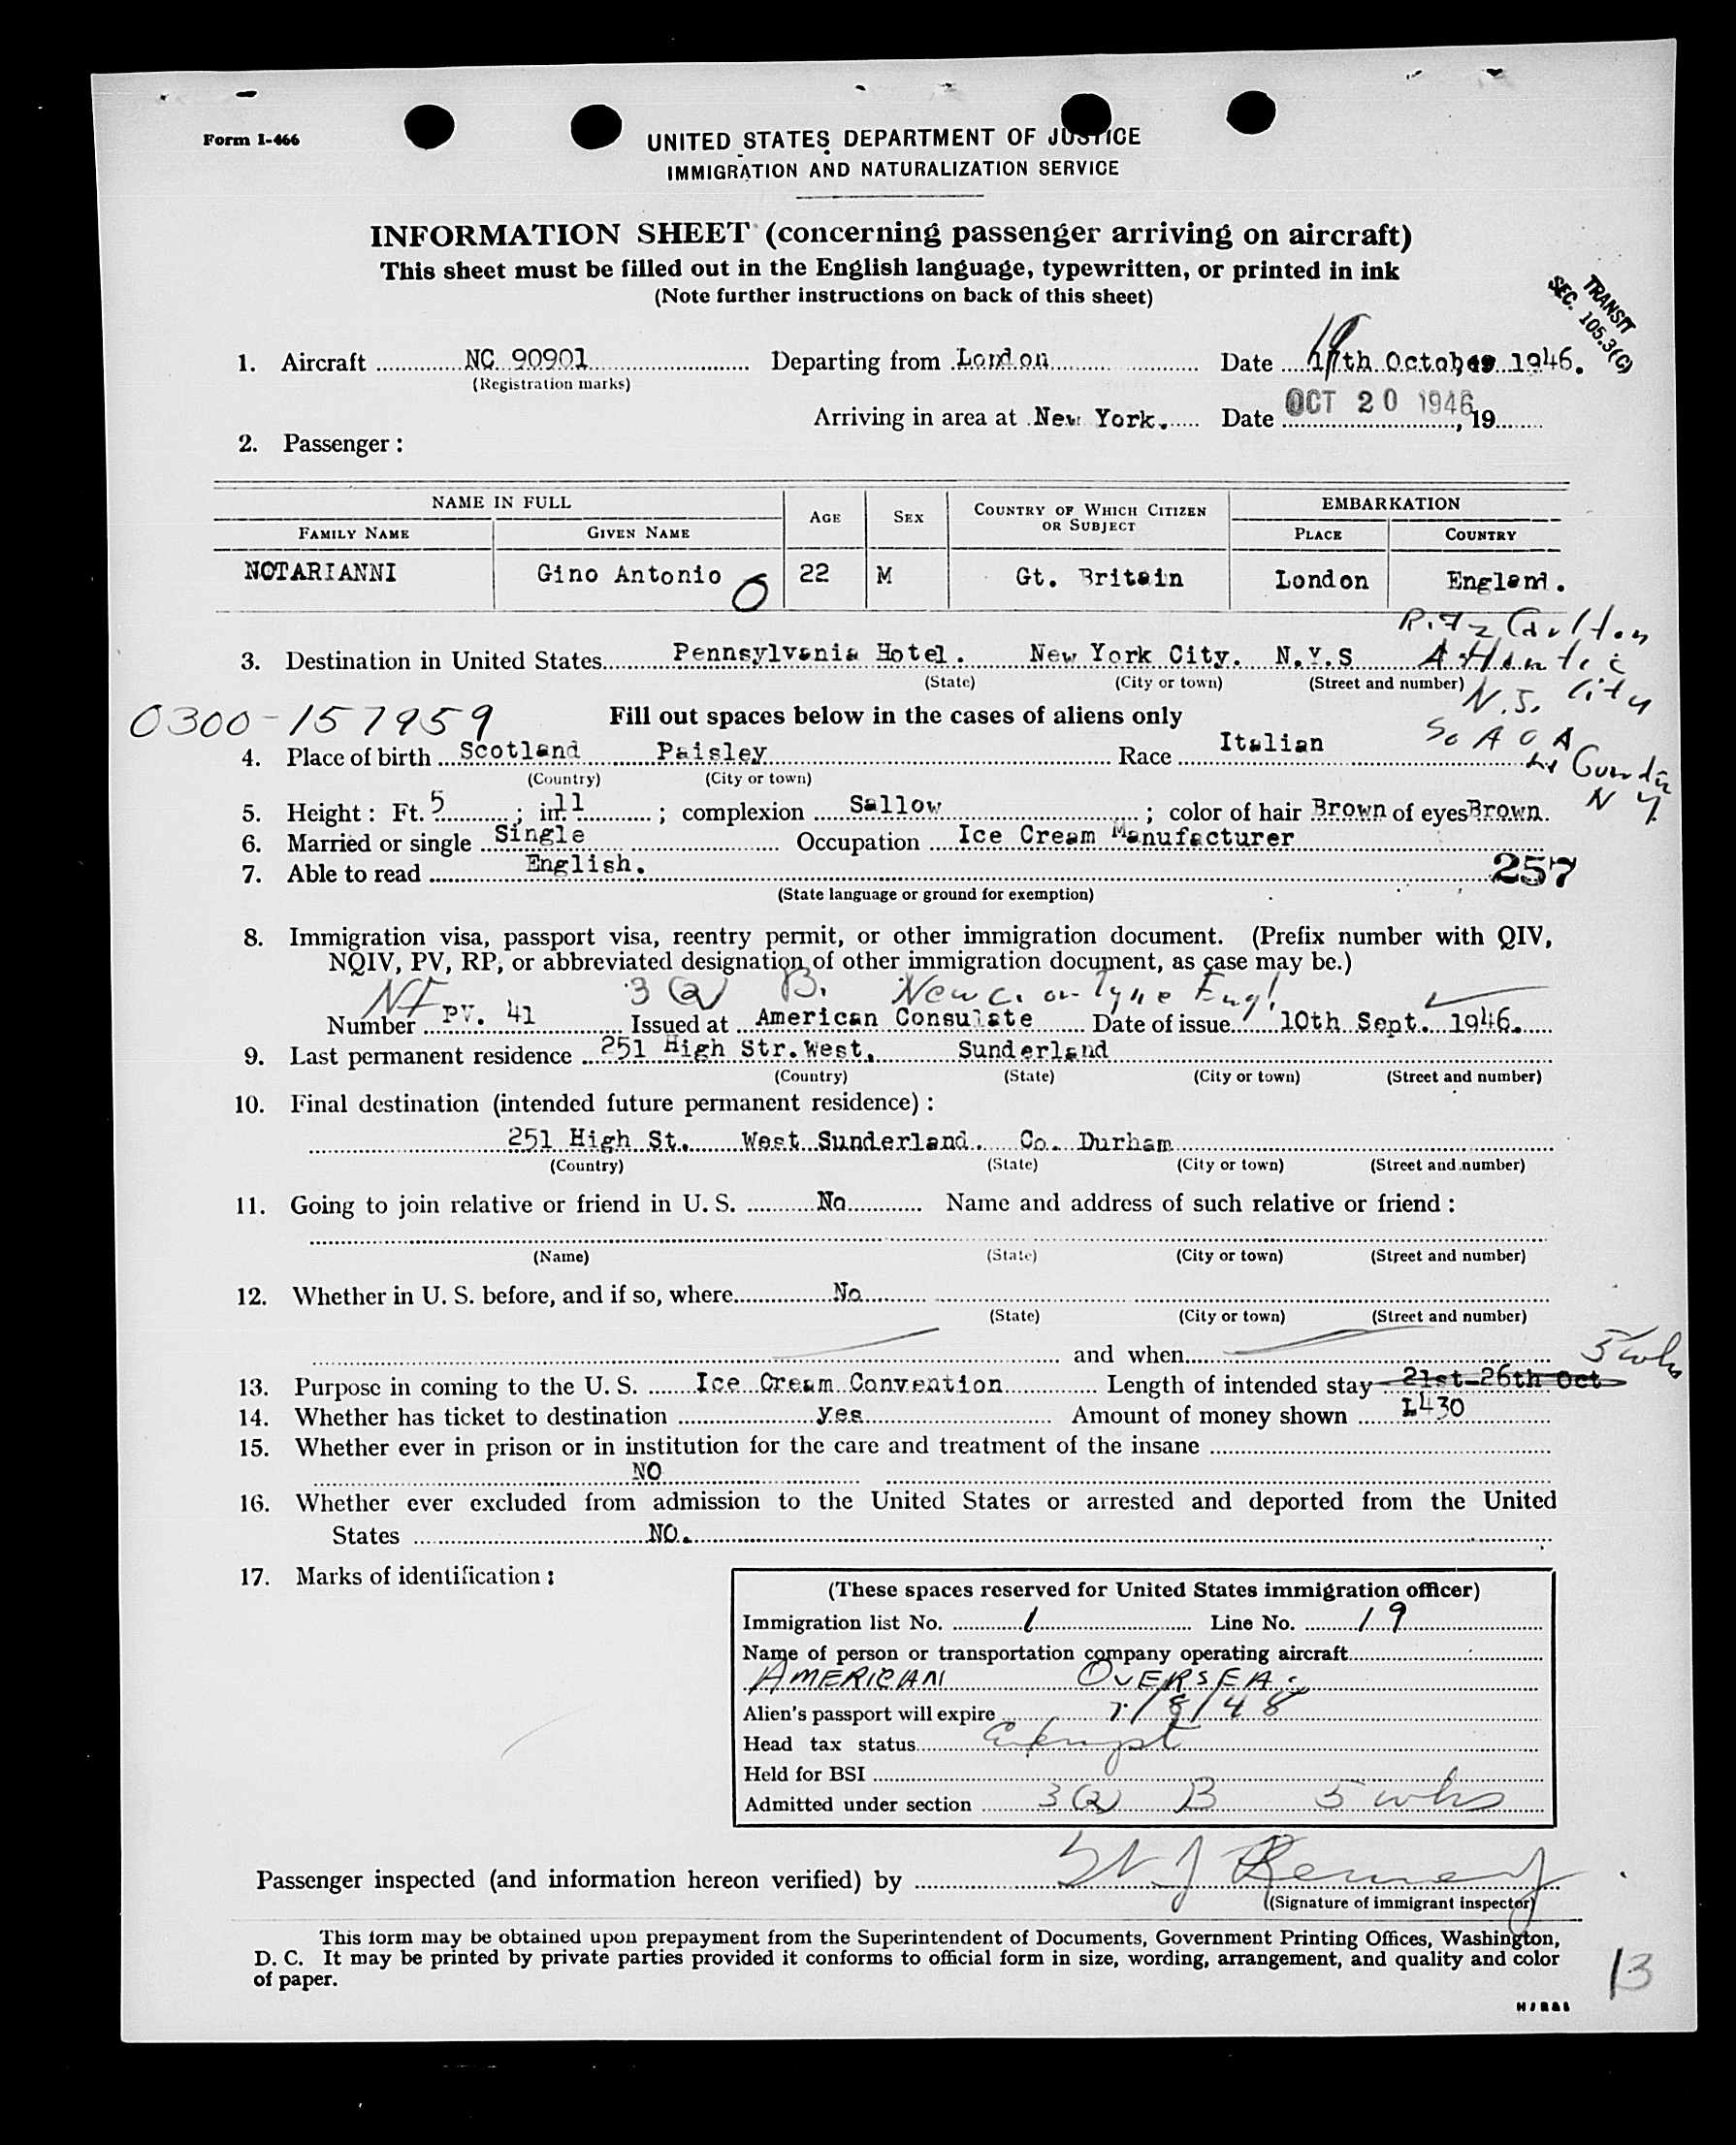 Form I-466
UNITED STATES DEPARTMENT OF JUSTICE
IMMIGRATION AND NATURALIZATION SERVICE
INFORMATION SHEET (concerning passenger arriving on aircraft)
This sheet must be filled out in the English language, typewritten, or printed in ink
(Note further instructions on back of this sheet)
TRANSIT
SEC. 105.3(C)
1. Aircraft NC 90901 Departing from London Date 19th October 1946.
(Registration marks)
Arriving in area at New York. Date OCT 20 1946, 19
2. Passenger:
NAME IN FULL AGE SEX COUNTRY OF WHICH CITIZEN OR SUBJECT EMBARKATION
FAMILY NAME GIVEN NAME PLACE COUNTRY
NOTARIANNI Gino Antonio O 22 M Gt. Britain London England.
Ritz Carlton
3. Destination in United States Pennsylvania Hotel. New York City. N.Y.S Atlantic
(State) (City or town) (Street and number) N.J. City
0300-157959 Fill out spaces below in the cases of aliens only
4. Place of birth Scotland Paisley Race Italian
(Country) (City or town)
5. Height: Ft. 5; in. 11; complexion Sallow; color of hair Brown of eyes Brown. N Y
6. Married or single Single Occupation Ice Cream Manufacturer
7. Able to read English. 257
(State language or ground for exemption)
8. Immigration visa, passport visa, reentry permit, or other immigration document. (Prefix number with QIV,
NQIV, PV, RP, or abbreviated designation of other immigration document, as case may be.)
3 (2) B. Newc. on Tyne Engl.
Number PV. 41 Issued at American Consulate Date of issue 10th Sept. 1946.
9. Last permanent residence 251 High Str. West. Sunderland
(Country) (State) (City or town) (Street and number)
10. Final destination (intended future permanent residence):
251 High St. West Sunderland. Co. Durham
(Country) (State) (City or town) (Street and number)
11. Going to join relative or friend in U. S. No Name and address of such relative or friend:
(Name) (State) (City or town) (Street and number)
12. Whether in U. S. before, and if so, where No
(State) (City or town) (Street and number)
and when 5 wks
13. Purpose in coming to the U. S. Ice Cream Convention Length of intended stay 21st-26th Oct
14. Whether has ticket to destination yes Amount of money shown £430
15. Whether ever in prison or in institution for the care and treatment of the insane
NO
16. Whether ever excluded from admission to the United States or arrested and deported from the United
States NO.
17. Marks of identification:
(These spaces reserved for United States immigration officer)
Immigration list No. 1 Line No. 19
Name of person or transportation company operating aircraft
AMERICAN OVERSEAS
Alien's passport will expire 7/8/48
Head tax status Exempt
Held for BSI
Admitted under section 3(2) B 5 wks
Passenger inspected (and information hereon verified) by
(Signature of immigrant inspector)
This form may be obtained upon prepayment from the Superintendent of Documents, Government Printing Offices, Washington,
D. C. It may be printed by private parties provided it conforms to official form in size, wording, arrangement, and quality and color
of paper.
13